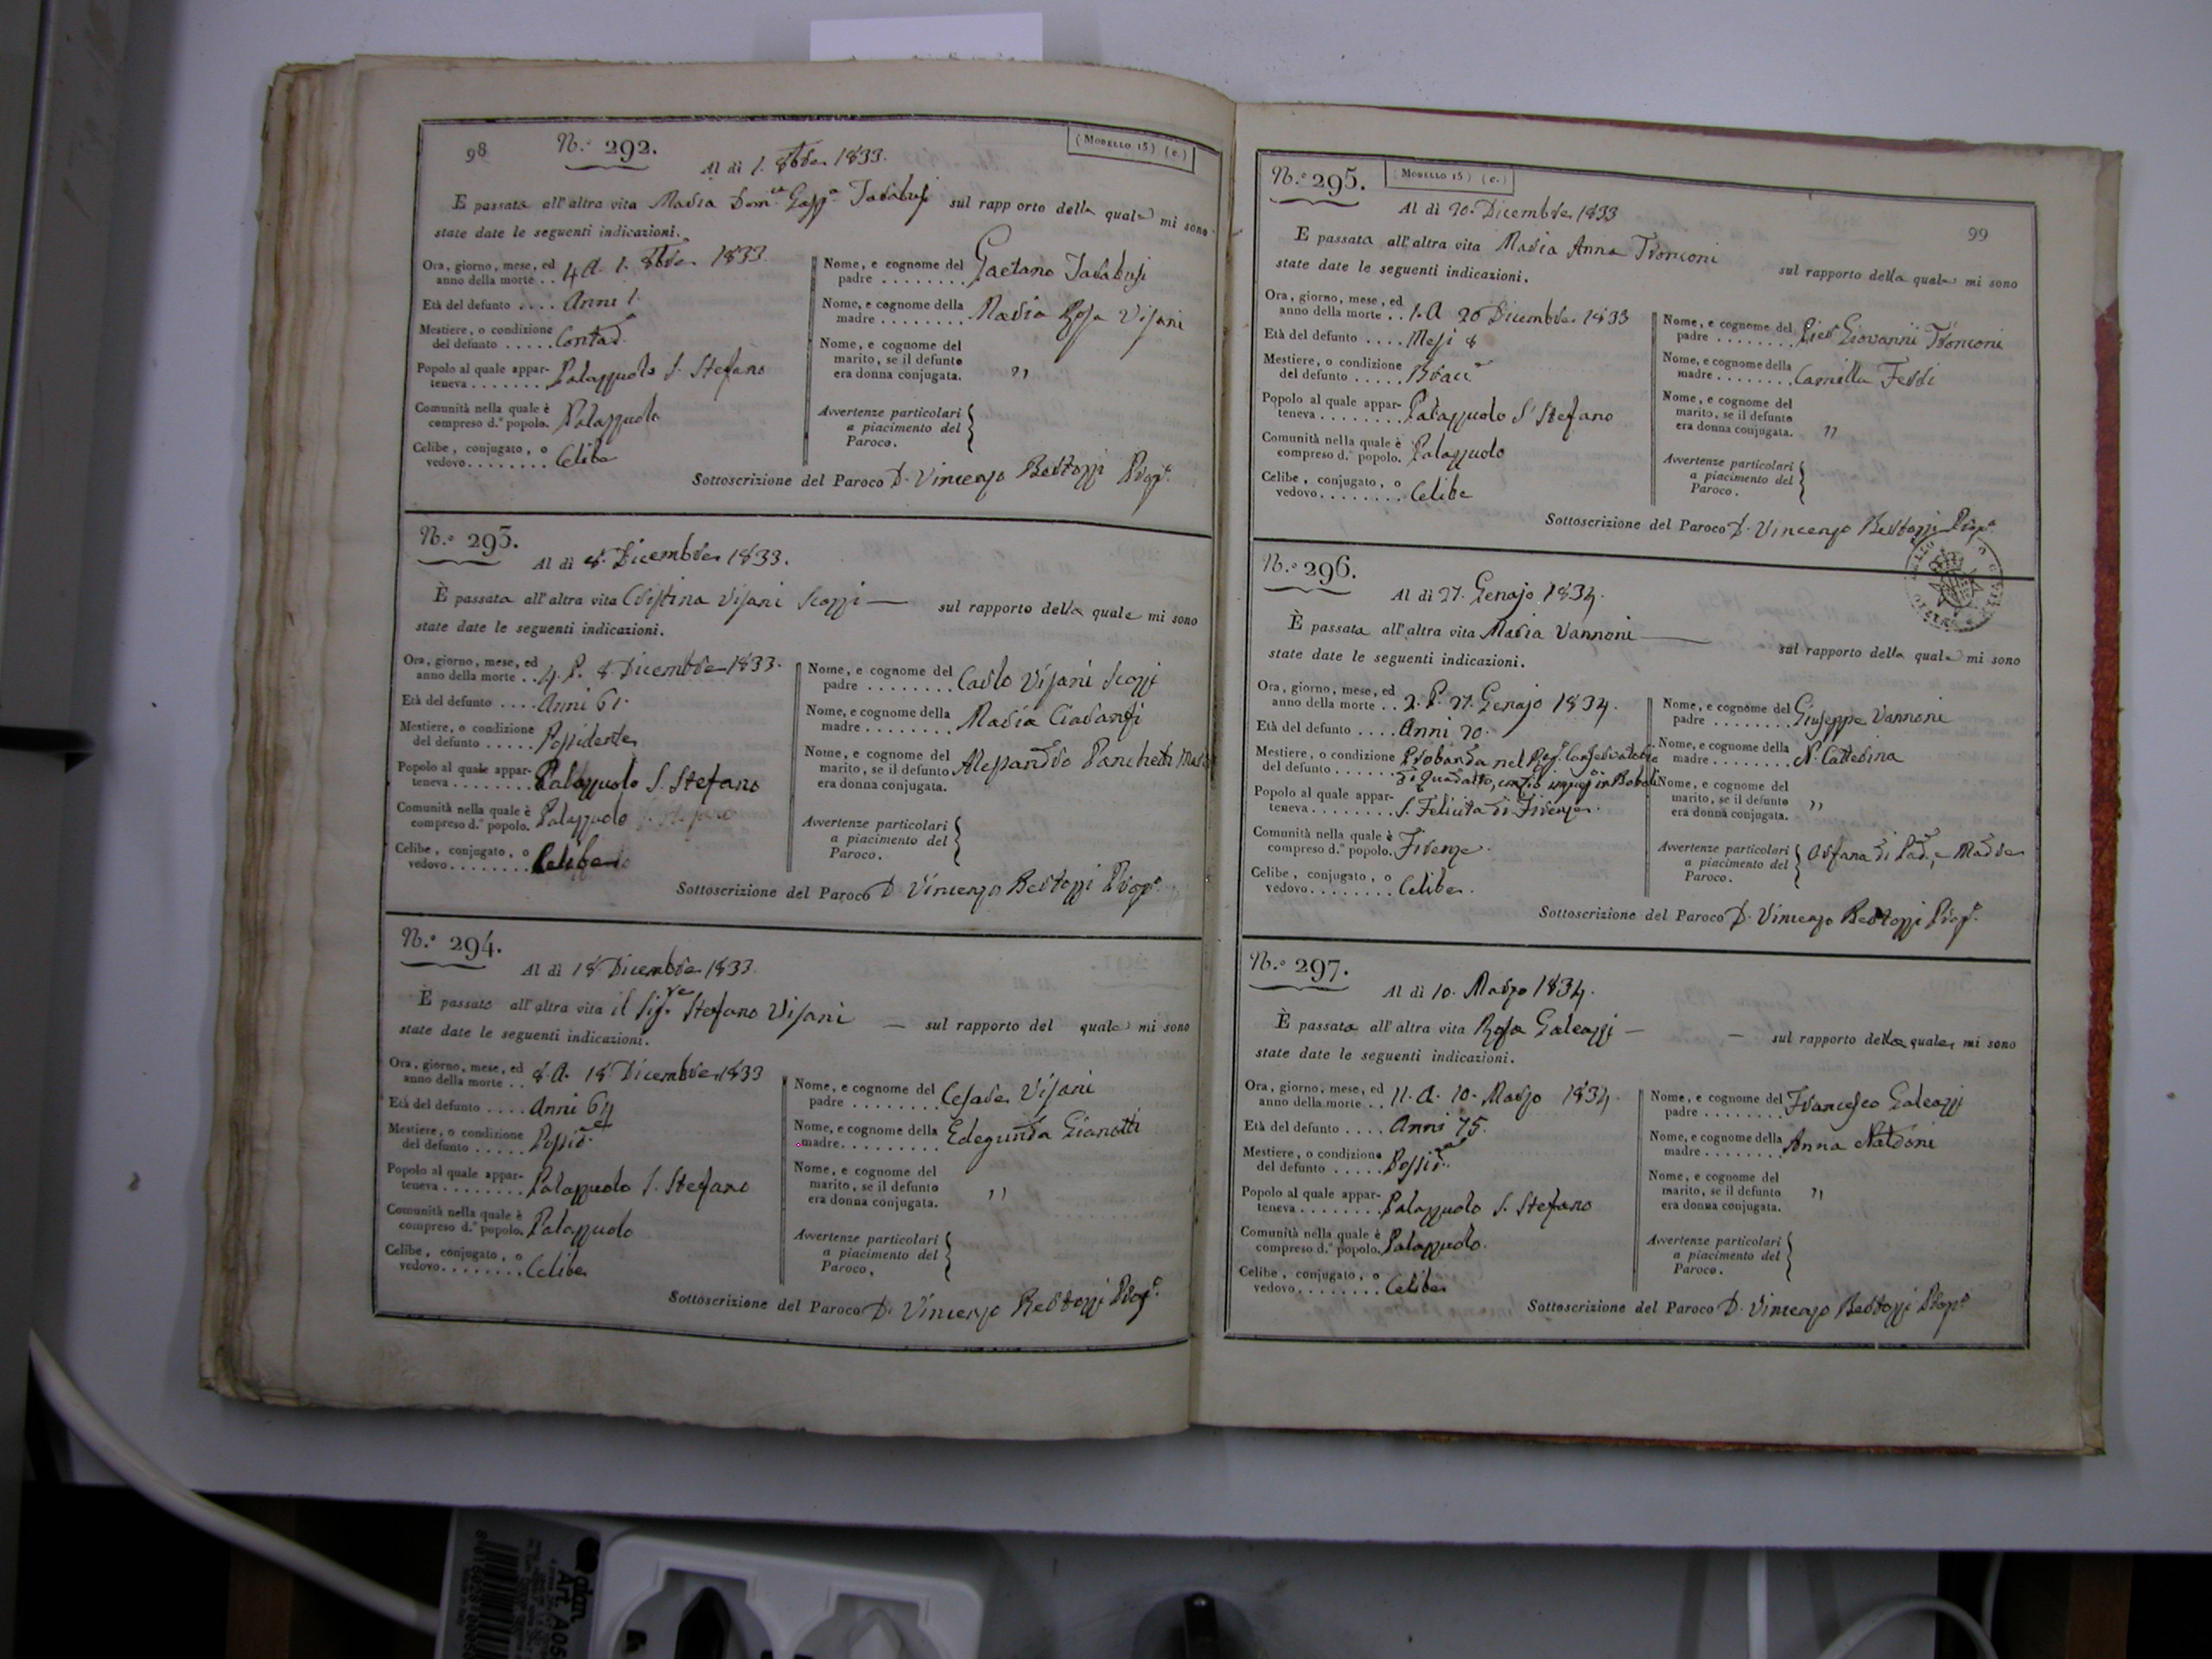 98
N.º 292.
(Modello 15) (e.)
Al dì 1. 8bre 1833.
E passata all'altra vita Maria Dom.ca Gasp.a Tarabusi sul rapporto della quale mi sono
state date le seguenti indicazioni.
Ora, giorno, mese, ed
anno della morte .. 4 A. 1. 8bre 1833.
Età del defunto .... Anni 1.
Mestiere, o condizione
del defunto ..... Contad.
Popolo al quale appar-
teneva ....... Palazzuolo S. Stefano
Comunità nella quale è
compreso d.º popolo. Palazzuolo
Celibe, conjugato, o
vedovo ........ Celibe
Nome, e cognome del
padre ........ Gaetano Tarabusi
Nome, e cognome della
madre ........ Maria Rosa Visani
Nome, e cognome del
marito, se il defunto
era donna conjugata. "
Avvertenze particolari
a piacimento del
Paroco.
Sottoscrizione del Paroco D. Vincenzo Bertozzi Prop.º
N.º 293.
Al dì 8. Dicembre 1833.
È passata all'altra vita Cristina Visani Scozzi — sul rapporto della quale mi sono
state date le seguenti indicazioni.
Ora, giorno, mese, ed
anno della morte .. 4. P. 8 Dicembre 1833.
Età del defunto .... Anni 61.
Mestiere, o condizione
del defunto ..... Possidente
Popolo al quale appar-
teneva ........ Palazzuolo S. Stefano
Comunità nella quale è
compreso d.º popolo. Palazzuolo
Celibe, conjugato, o
vedovo ........ Celibe
Nome, e cognome del
padre ........ Carlo Visani Scozzi
Nome, e cognome della
madre ........ Maria
Nome, e cognome del
marito, se il defunto Alessandro Panchetti
era donna conjugata.
Avvertenze particolari
a piacimento del
Paroco.
Sottoscrizione del Paroco D. Vincenzo Bertozzi Prop.º
N.º 294.
Al dì 18 Dicembre 1833.
È passato all'altra vita il Sig.re Stefano Visani — sul rapporto del quale mi sono
state date le seguenti indicazioni.
Ora, giorno, mese, ed
anno della morte .. 8. A. 18 Dicembre 1833
Età del defunto .... Anni 64
Mestiere, o condizione
del defunto ..... Possid.te
Popolo al quale appar-
teneva ........ Palazzuolo S. Stefano
Comunità nella quale è
compreso d.º popolo. Palazzuolo
Celibe, conjugato, o
vedovo ........ Celibe
Nome, e cognome del
padre ........ Cesare Visani
Nome, e cognome della
madre ......... Edegunda Gianotti
Nome, e cognome del
marito, se il defunto
era donna conjugata. "
Avvertenze particolari
a piacimento del
Paroco.
Sottoscrizione del Paroco D. Vincenzo Bertozzi Prop.º
N.º 295.
(Modello 15) (e.)
99
Al dì 20. Dicembre 1833
E passata all'altra vita Maria Anna Tronconi sul rapporto della quale mi sono
state date le seguenti indicazioni.
Ora, giorno, mese, ed
anno della morte .. 1. A 20 Dicembre 1833
Età del defunto .... Mesi 8
Mestiere, o condizione
del defunto ..... Bracc.
Popolo al quale appar-
teneva ........ Palazzuolo S. Stefano
Comunità nella quale è
compreso d.º popolo. Palazzuolo
Celibe, conjugato, o
vedovo ........ Celibe
Nome, e cognome del
padre ........ Pier Giovanni Tronconi
Nome, e cognome della
madre ........ Camilla Ferri
Nome, e cognome del
marito, se il defunto
era donna conjugata. "
Avvertenze particolari
a piacimento del
Paroco.
Sottoscrizione del Paroco D. Vincenzo Bertozzi Prop.º
N.º 296.
Al dì 27. Genajo 1834.
È passata all'altra vita Maria Vannoni — sul rapporto della quale mi sono
state date le seguenti indicazioni.
Ora, giorno, mese, ed
anno della morte .. 2. P. 27. Genajo 1834.
Età del defunto .... Anni 20.
Mestiere, o condizione Probanda nel Reg. Conservatorio
del defunto ...... di Quaralto,
Popolo al quale appar-
teneva ........ S. Felicita di Firenze.
Comunità nella quale è
compreso d.º popolo. Firenze.
Celibe, conjugato, o
vedovo ........ Celibe.
Nome, e cognome del
padre ........ Giuseppe Vannoni
Nome, e cognome della
madre ........ N. Catterina
Nome, e cognome del
marito, se il defunto "
era donna conjugata.
Avvertenze particolari Orfana di Pad., e Madre
a piacimento del
Paroco.
Sottoscrizione del Paroco D. Vincenzo Bertozzi Prop.º
N.º 297.
Al dì 10. Marzo 1834.
È passata all'altra vita Rosa Galeazzi — — sul rapporto della quale mi sono
state date le seguenti indicazioni.
Ora, giorno, mese, ed
anno della morte .. 11. A. 10. Marzo 1834.
Età del defunto .... Anni 75.
Mestiere, o condizione
del defunto ..... Possid.te
Popolo al quale appar-
teneva ........ Palazzuolo S. Stefano
Comunità nella quale è
compreso d.º popolo. Palazzuolo.
Celibe, conjugato, o
vedovo ........ Celibe
Nome, e cognome del
padre ........ Francesco Galeazzi
Nome, e cognome della
madre ........ Anna Naldoni
Nome, e cognome del
marito, se il defunto "
era donna conjugata.
Avvertenze particolari
a piacimento del
Paroco.
Sottoscrizione del Paroco D. Vincenzo Bertozzi Prop.º
Art. A05